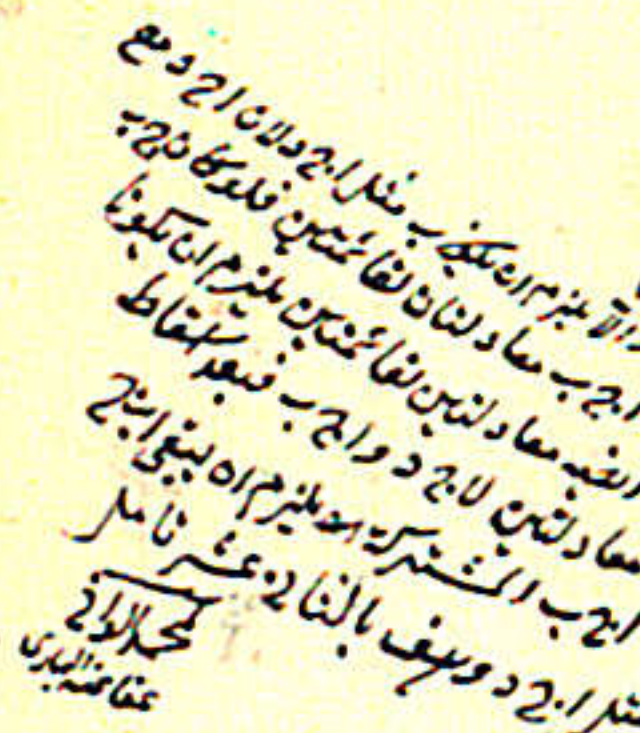 والا يلزم ان يكون ب مثل ا ج د لان ا ج د مع
ا ج ب معادلتان لقائمتين فلو كان ج ب
ايضا معادلتين لقائمتين يلزم ان يكونا
معادلتين لا ج د و ا ج ب فبعد اسقاط
ا ج ب المشترك يلزم ان يبقى
مثل ا ج د بالثاني عشر تامل
لمحمد الواني
عفا عنه الباري